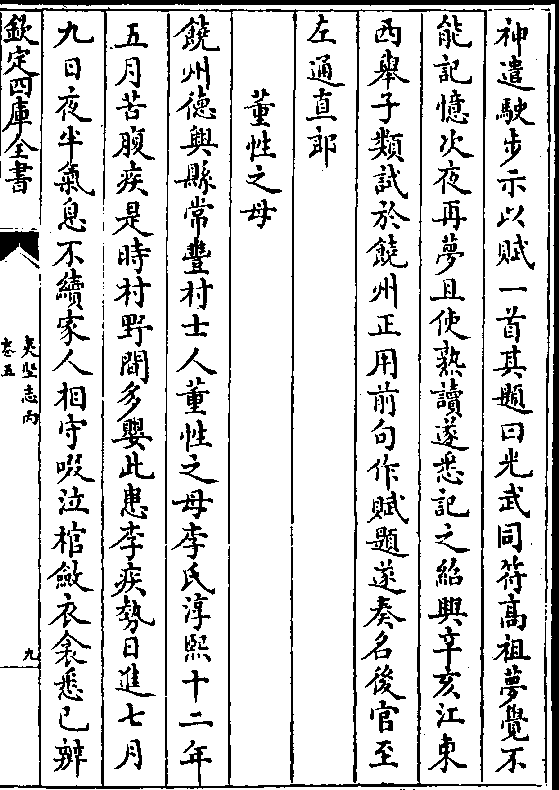 神遣駛步示以賦一首其題曰光武同符高祖夢覺不
能記憶次夜再夢且使熟讀遂悉記之紹興辛亥江東
西舉子類試於饒州正用前句作賦題遂奏名後官至
左通直郎
董性之母
饒州德興縣常豐村士人董性之母李氏淳熙十二年
五月苦腹疾是時村野間多嬰此患李疾勢日進七月
九日夜半氣息不續家人相守啜泣棺斂衣衾悉已辦
欽定四庫全書
夷堅志丙
卷五
九